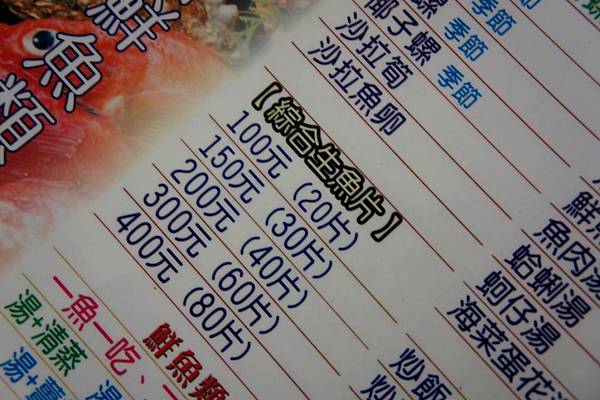 鮮魚類
螺 季節
椰子螺 季節
沙拉筍
沙拉魚卵
【綜合生魚片】
100元 (20片)
150元 (30片)
200元 (40片)
300元 (60片)
400元 (80片)
魚肉湯
蛤蜊湯
蚵仔湯
海菜蛋花
炒飯
鮮魚類
一魚一吃、
湯+清蒸